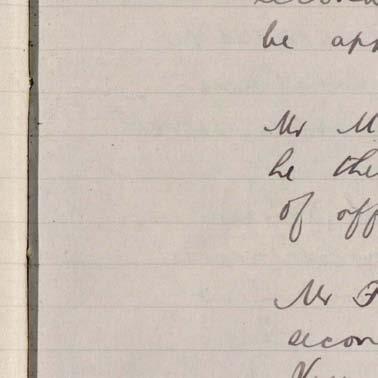 be app
Mr M
he the
of off
Mr F
secon